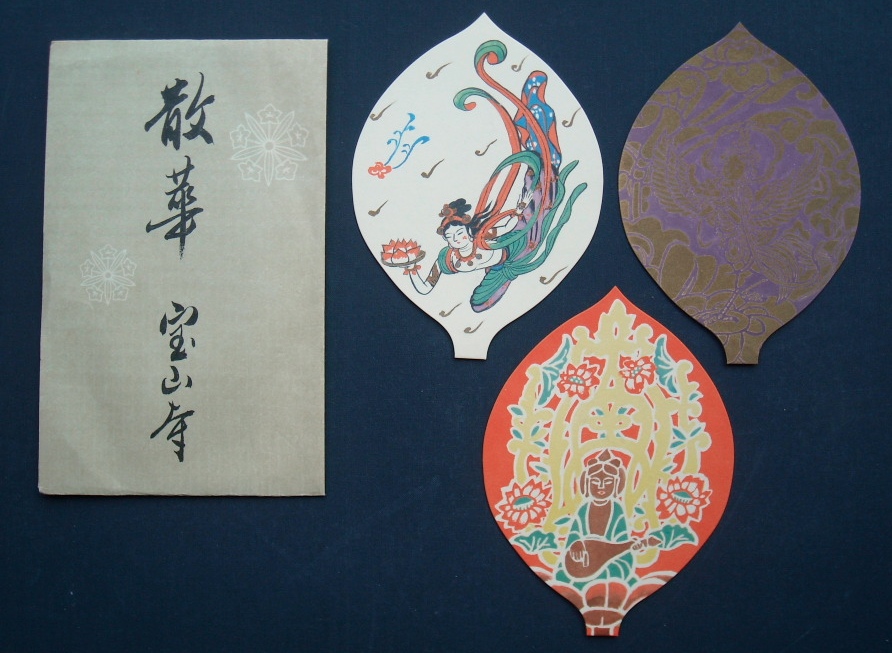 散華 宝山寺